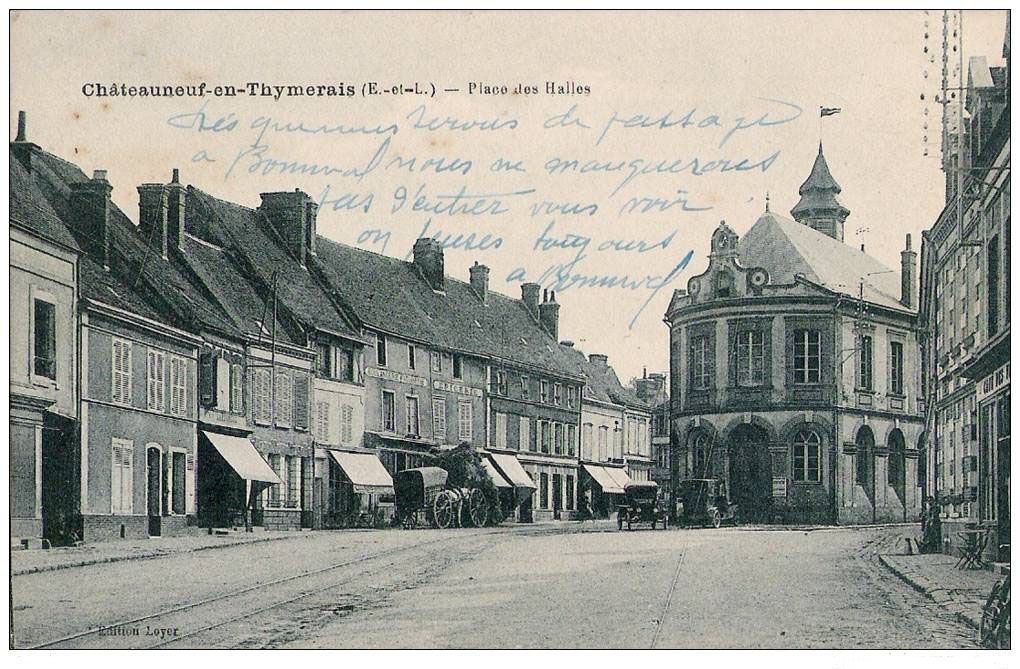 Châteauneuf-en-Thymerais (E.-et-L.) — Place des Halles
Dés que nous serons de passage
a Bonneval nous ne manquerons
pas d'entrer vous voir
toujours
a Bonneval
EPICERIE
Edition Loyer